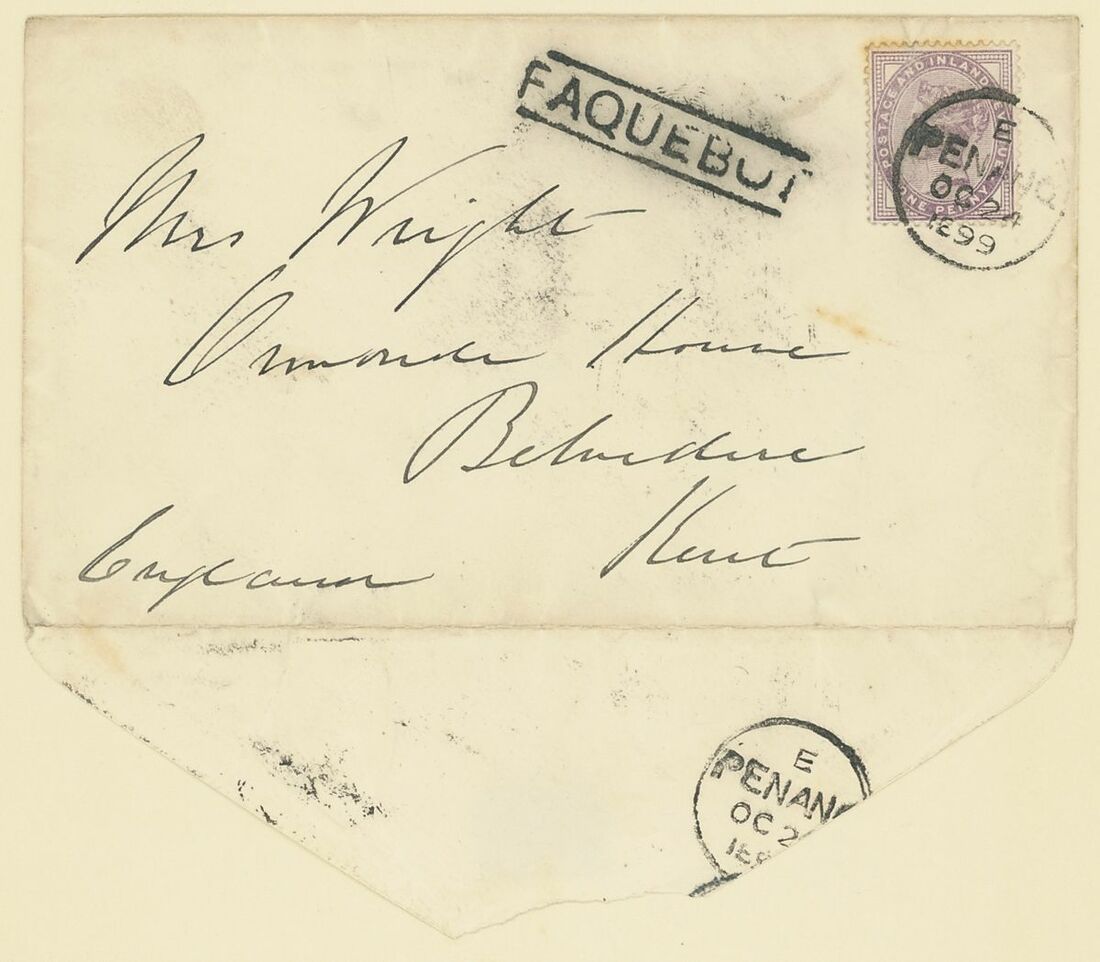 PAQUEBOT
POSTAGE AND INLAND REVENUE
ONE PENNY
E
PENANG
OC 24
1899
Mrs Wright
Ormonde House
Belvedere
Kent
England
E
PENANG
OC 2